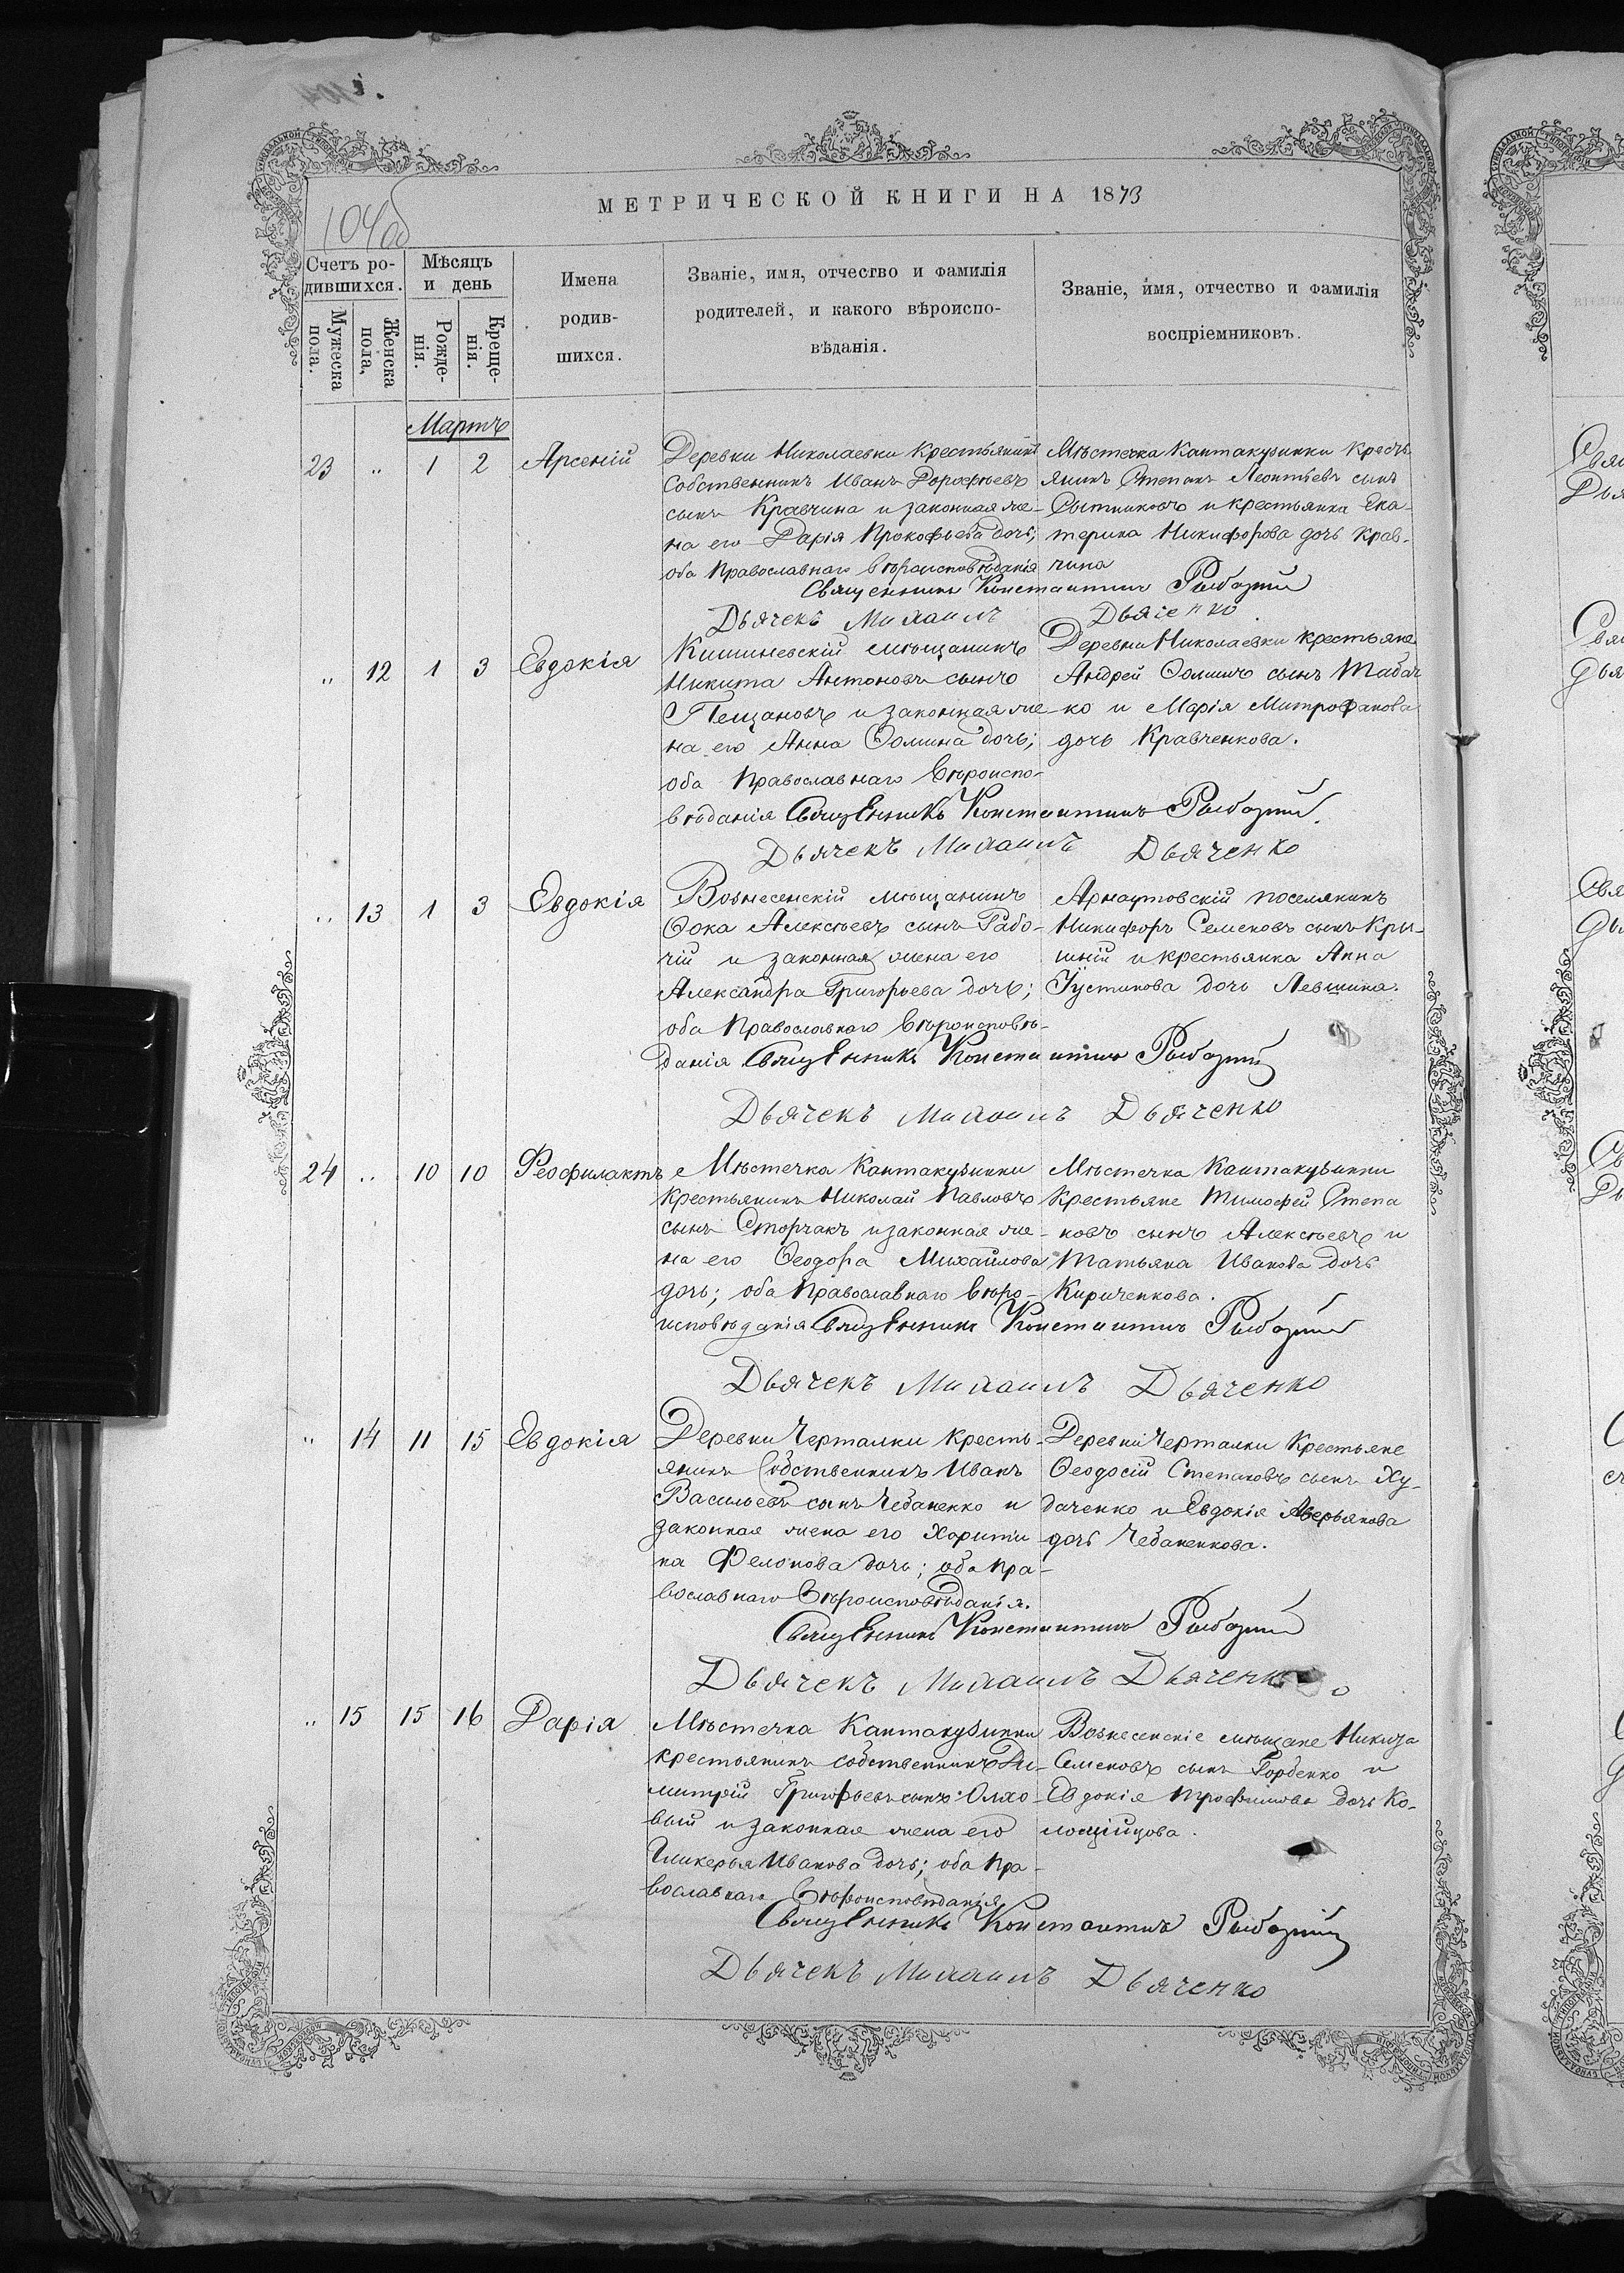 104об
МЕТРИЧЕСКОЙ КНИГИ НА 1873
Счетъ ро-
дившихся.
Мужеска
пола.
Женска
пола,
Мѣсяцъ
и день
Рожде-
нія.
Креще-
нія.
Имена
родив-
шихся.
Званіе, имя, отчество и фамилія
родителей, и какого вѣроиспо-
вѣданія.
Званіе, имя, отчество и фамилія
воспріемниковъ.
Мартъ
23 " 1 2 Арсеній
Деревни Николаевки крестьянинъ
собственникъ Иванъ Дорофѣевъ
сынъ Кравчина и законная же-
на его Дарія Прокофьева дочь;
оба Православнаго вѣроисповѣданія
Мѣстечка Кантакузинки кресть-
янинъ Степанъ Леонтьевъ сынъ
Сытниковъ и крестьянка Ека-
терина Никифорова дочь Крав-
чина
Священникъ Константинъ
Дьячекъ Михаилъ Дьяченко
" 12 1 3 Евдокія
Кишиневскій мѣщанинъ
Никита Антоновъ сынъ
и законная же-
на его Анна Ѳомина дочь;
оба Православнаго вѣроиспо-
вѣданія
Деревни Николаевки крестьяне
Андрей Ѳоминъ сынъ Табач
ко и Марія Митрофанова
дочь Кравченкова.
Священникъ Константинъ
Дьячекъ Михаилъ Дьяченко
" 13 1 3 Евдокія
Вознесенскій мѣщанинъ
Ѳока Алексѣевъ сынъ Рабо-
чій и законная жена его
Александра Григорьева дочь;
оба Православнаго вѣроисповѣ-
данія
Арнаутовскій поселянинъ
Никифоръ Семеновъ сынъ Кры-
и крестьянка Анна
Іустинова дочь Левшина.
Священникъ Константинъ
Дьячекъ Михаилъ Дьяченко
24 " 10 10 Ѳеофилактъ
Мѣстечка Кантакузинки
крестьянинъ Николай Павловъ
сынъ Сторчакъ и законная же-
на его Ѳеодора Михайлова
дочь; оба Православнаго вѣро-
исповѣданія
Мѣстечка Кантакузинки
Крестьяне Тимофей Степа
новъ сынъ Алексѣевъ и
Татьяна Иванова дочь
Кириченкова.
Священникъ Константинъ
Дьячекъ Михаилъ Дьяченко
" 14 11 15 Евдокія
Деревни Черталки кресть-
янинъ Собственникъ Иванъ
Васильевъ сынъ Чебаненко и
законная жена его Харити
на Филонова дочь; оба Пра-
вославнаго Вѣроисповѣданія.
Деревни Черталки Крестьяне
Ѳеодосій Степановъ сынъ Ху-
даченко и Евдокія Аверьянова
дочь Чебаненкова.
Священникъ Константинъ
Дьячекъ Михаилъ Дьяченко
" 15 15 16 Дарія
Мѣстечка Кантакузинки
крестьянинъ собственникъ Ди-
митрій Григорьевъ сынъ Ольхо-
вый и законная жена его
Гликерья Иванова дочь; оба Пра-
вославнаго Вѣроисповѣданія
Вознесенскіе мѣщане Никита
Семеновъ сынъ Горбенко и
Евдокія Трофимова дочь Ко-
Священникъ Константинъ
Дьячекъ Михаилъ Дьяченко